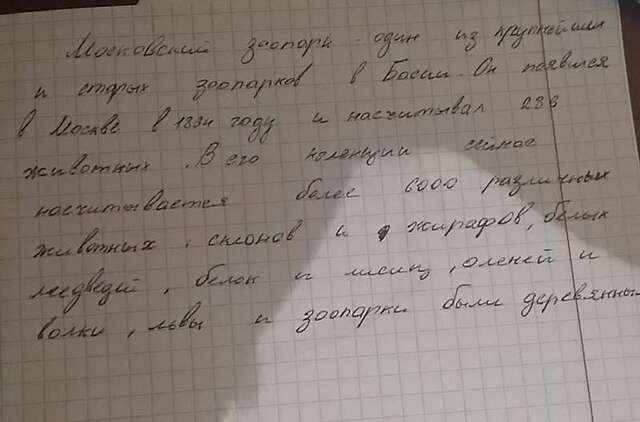 Московский зоопарк - один из крупнейших
и старых зоопарков в Босии. Он появился
в Москве в 1834 году и насхитывал 286
животных. В его коленции сейчас
насхитывается более 6000 различных
животных: слонов и жирафов, белых
медведей, белок и лисиц, оленей и
волки, львы и зоопарки были деревянны